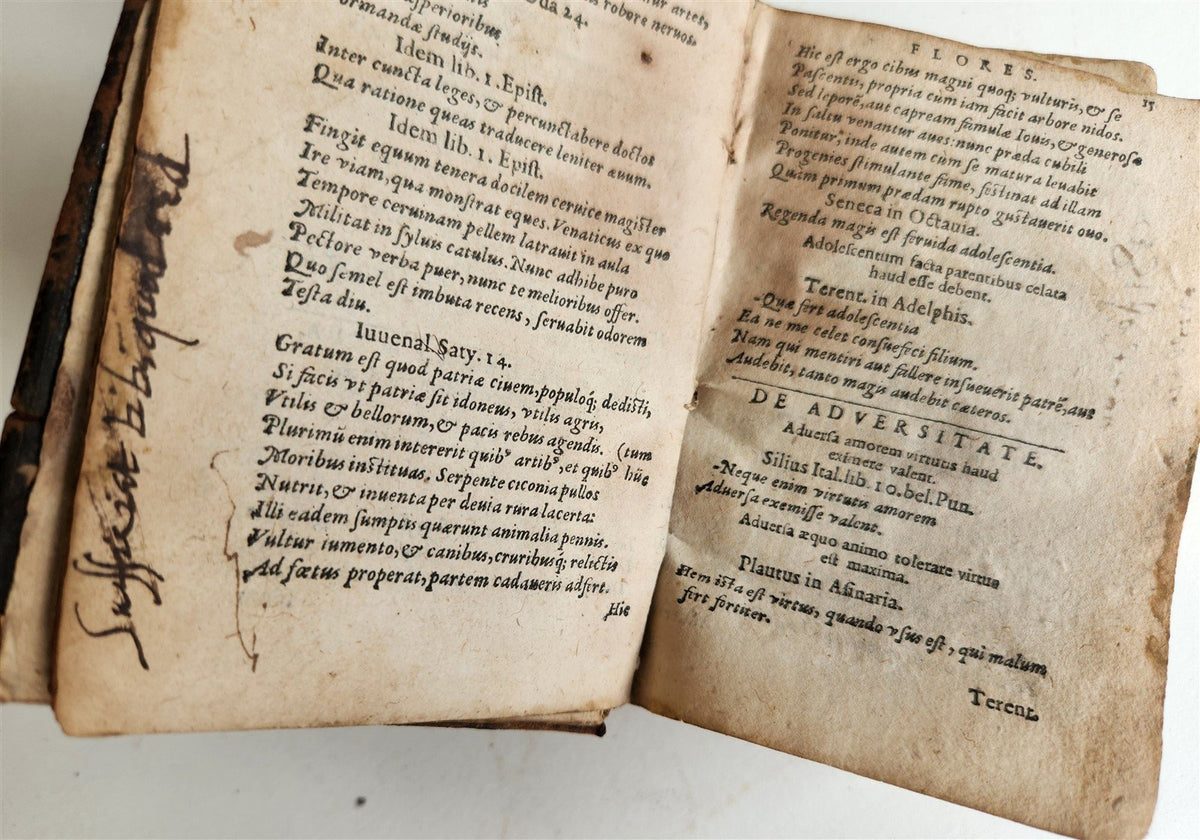 ur artes,
robore neruos.
24.
asperioribus
ormandæ ſtudijs.
Idem lib. 1. Epiſt.
Inter cuncta leges, & percunctabere doctos
Qua ratione queas traducere leniter æuum.
Idem lib. 1. Epiſt.
Fingit equum tenera docilem ceruice magiſter
Ire viam, qua monſtrat eques. Venaticus ex quo
Tempore ceruinam pellem latrauit in aula
Militat in ſyluis catulus. Nunc adhibe puro
Pectore verba puer, nunc te melioribus offer.
Quo ſemel eſt imbuta recens, ſeruabit odorem
Teſta diu.
Iuuenal. Saty. 14.
Gratum eſt quod patriæ ciuem, populoq; dediſti,
Si facis vt patriæ ſit idoneus, vtilis agris,
Vtilis & bellorum, & pacis rebus agendis. (tum
Plurimũ enim intererit quibꝰ artibꝰ, et quibꝰ hũc
Moribus inſtituas. Serpente ciconia pullos
Nutrit, & inuenta per deuia rura lacerta:
Illi eadem ſumptis quærunt animalia pennis.
Vultur iumento, & canibus, cruribusq; relictis
Ad fœtus properat, partem cadaueris adfert.
Hic
FLORES.
15
Hic eſt ergo cibus magni quoq; vulturis, & ſe
Paſcentis, propria cùm iam facit arbore nidos.
Sed leporẽ, aut capream famulæ Iouis, & generoſæ
In ſaltu venantur aues: nunc præda cubili
Ponitur, inde autem cùm ſe matura leuabit
Progenies ſtimulante fame, feſtinat ad illam
Quam primum prædam rupto guſtauerit ouo.
Seneca in Octauia.
Regenda magis eſt feruida adoleſcentia.
Adoleſcentum facta parentibus celata
haud eſſe debent.
Terent. in Adelphis.
-Quæ fert adoleſcentia
Ea ne me celet conſuefeci filium.
Nam qui mentiri aut fallere inſueuerit patrẽ, aut
Audebit, tanto magis audebit cæteros.
DE ADVERSITATE.
Aduerſa amorem virtutis haud
eximere valent.
Silius Ital. lib. 10. bel. Pun.
-Neque enim virtutis amorem
Aduerſa exemiſſe valent.
Aduerſa æquo animo tolerare virtus
eſt maxima.
Plautus in Aſinaria.
Hem iſta eſt virtus, quando vſus eſt, qui malum
fert fortiter.
Terent.